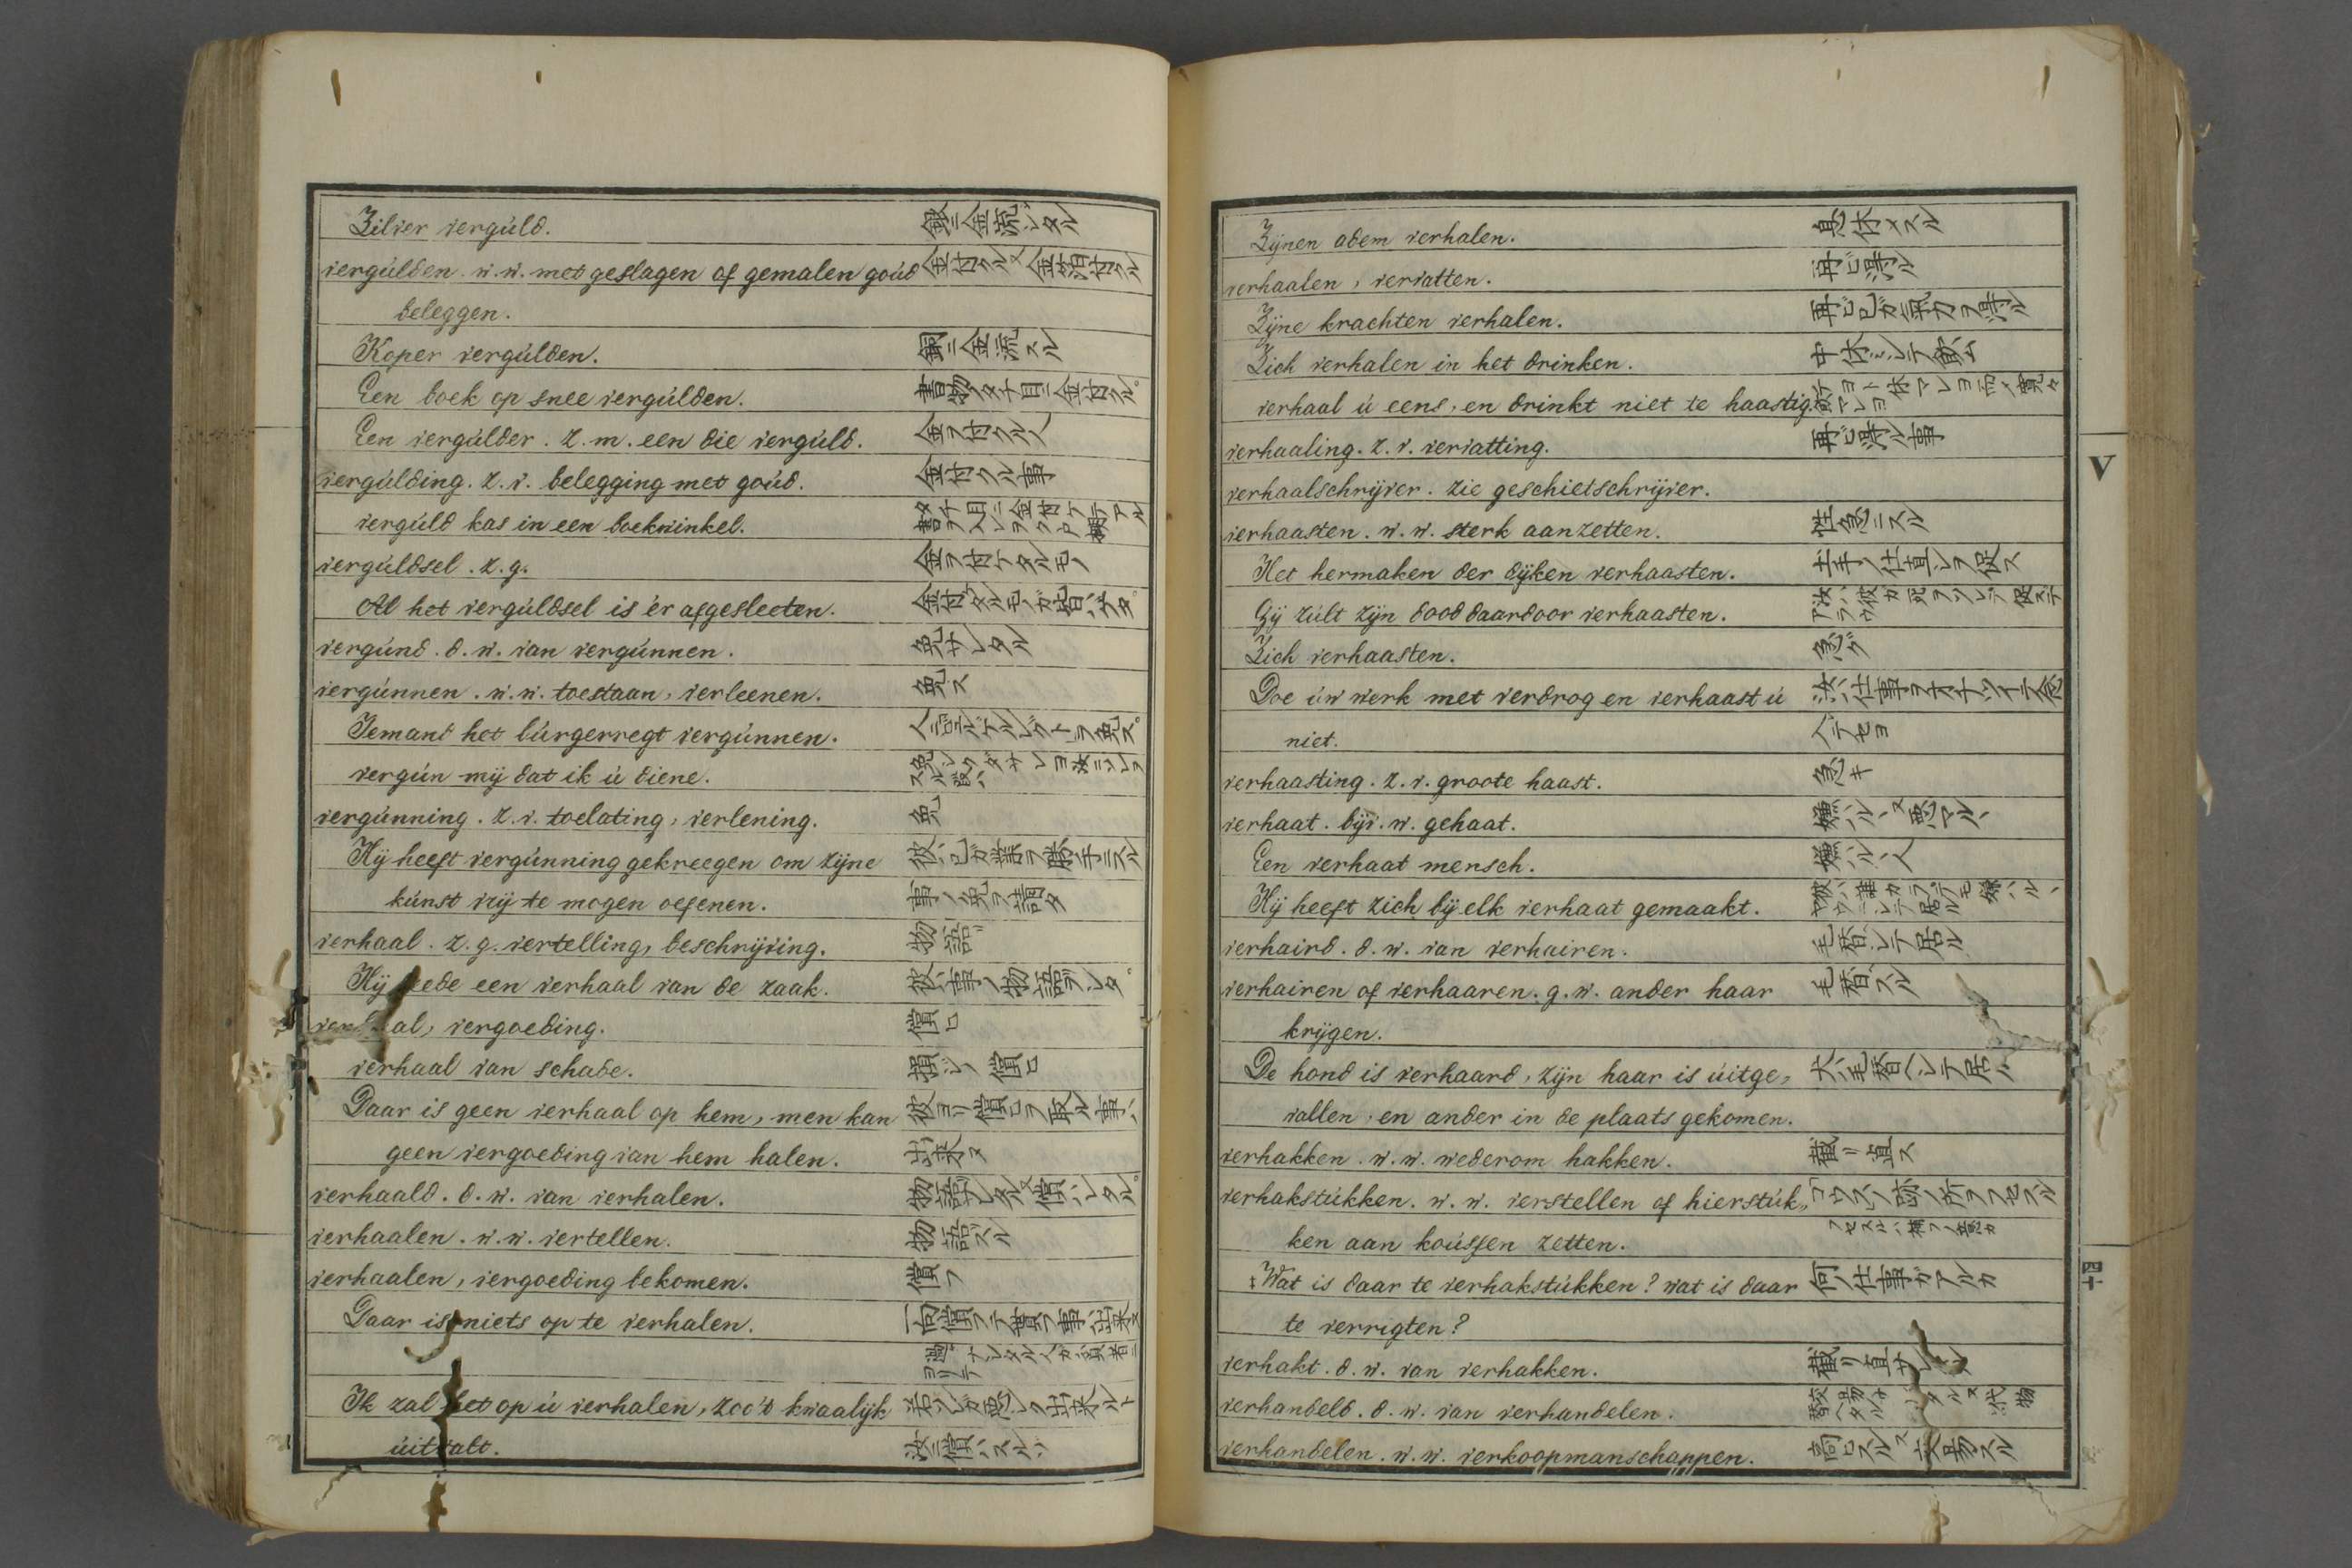 Zilver vergúld. 銀ニ金流シタル
vergúlden. w.w. met geslagen of gemalen goúd 金付クル又金箔付クル
beleggen.
Koper vergúlden. 銅ニ金流スル
Een boek op snee vergúlden. 書物ノタチ目ニ金付クル。
Een vergúlder. z.m. een die vergúld. 金ヲ付クル人
vergúlding. z.v. belegging met goúd. 金付クル事
vergúld kas in een boekwinkel. タチ目ニ金付ケテアル書ヲ入レヲク戸棚
vergúldsel. z.g. 金ヲ付ケタルモノ
Al het vergúldsel is ér afgesleeten. 金付タルモノガ皆ハゲタ。
vergúnd. d.w. van vergúnnen. 免サレタル
vergúnnen. w.w. toestaan, verleenen. 免ス
Iemand het búrgerregt vergúnnen.
vergún mij dat ik ú diene.
vergúnning. z.v. toelating, verlening. 免
Hij heeft vergúnning gekreegen om zijne 彼ハ己ガ業ヲ勝手ニスル
kúnst vrij te mogen oefenen. 事ノ免ヲ請タ
verhaal. z.g. vertelling, beschrijving. 物語リ
Hij deede een verhaal van de zaak. 彼ハ事ノ物語ヲシタ。
verhaal, vergoeding. 償ロ
verhaal van schade. 損シノ償ロ
Daar is geen verhaal op hem, men kan 彼ヨリ償ロヲ取ル事ハ
geen vergoeding van hem halen. 出来ヌ
verhaald. d.w. van verhalen. 物語サレタル又償ハレタル。
verhaalen. w.w. vertellen. 物語スル
verhaalen, vergoeding bekomen. 償フ
Daar is niets op te verhalen. 一向償フテ貰フ事ハ出来ヌ
Ik zal het op ú verhalen, zoo't kwaalijk 若シソレガ悪シク出来ルト
úitvalt. 汝ニ償ハスルゾ
Zijnen adem verhalen. 息休メスル
verhaalen, vervatten. 再ビ得ル
Zijne krachten verhalen. 再ビ己ガ氣力ヲ得ル
Zich verhalen in het drinken. 中休ミシテ飲ム
verhaal ú eens, en drinkt niet te haastig.
verhaaling. z.v. vervatting. 再ビ得ル事
verhaalschrijver. zie geschietschrijver.
verhaasten. w.w. sterk aanzetten. 性急ニスル
Het hermaken der dijken verhaasten. 土手ノ仕直シヲ促ス
Gij zúlt zijn dood daardoor verhaasten.
Zich verhaasten. 急グ
Doe úw werk met verdrog en verhaast ú
niet.
verhaasting. z.v. groote haast. 急キ
verhaat. bijv.w. gehaat.
Een verhaat mensch. 嫌ハルヽ人
Hij heeft zich bij elk verhaat gemaakt.
verhaird. d.w. van verhairen. 毛替シテ居ル
verhairen of verhaaren. g.w. ander haar 毛替スル
krijgen.
De hond is verhaard, zijn haar is úitge, 犬ハ毛替ヘシテ居ル
vallen, en ander in de plaats gekomen.
verhakken. w.w. wederom hakken. 截リ直ス
verhakstúkken. w.w. verstellen of hierstúk,,
ken aan koússen zetten.
Wat is daar te verhakstúkken? wat is daar 何ノ仕事ガアルカ
te verrigten?
verhakt. d.w. van verhakken. 截リ直サレタル
verhandeld. d.w. van verhandelen.
verhandelen. w.w. verkoopmanschappen. 商ヒスル又交易スル
V
四十